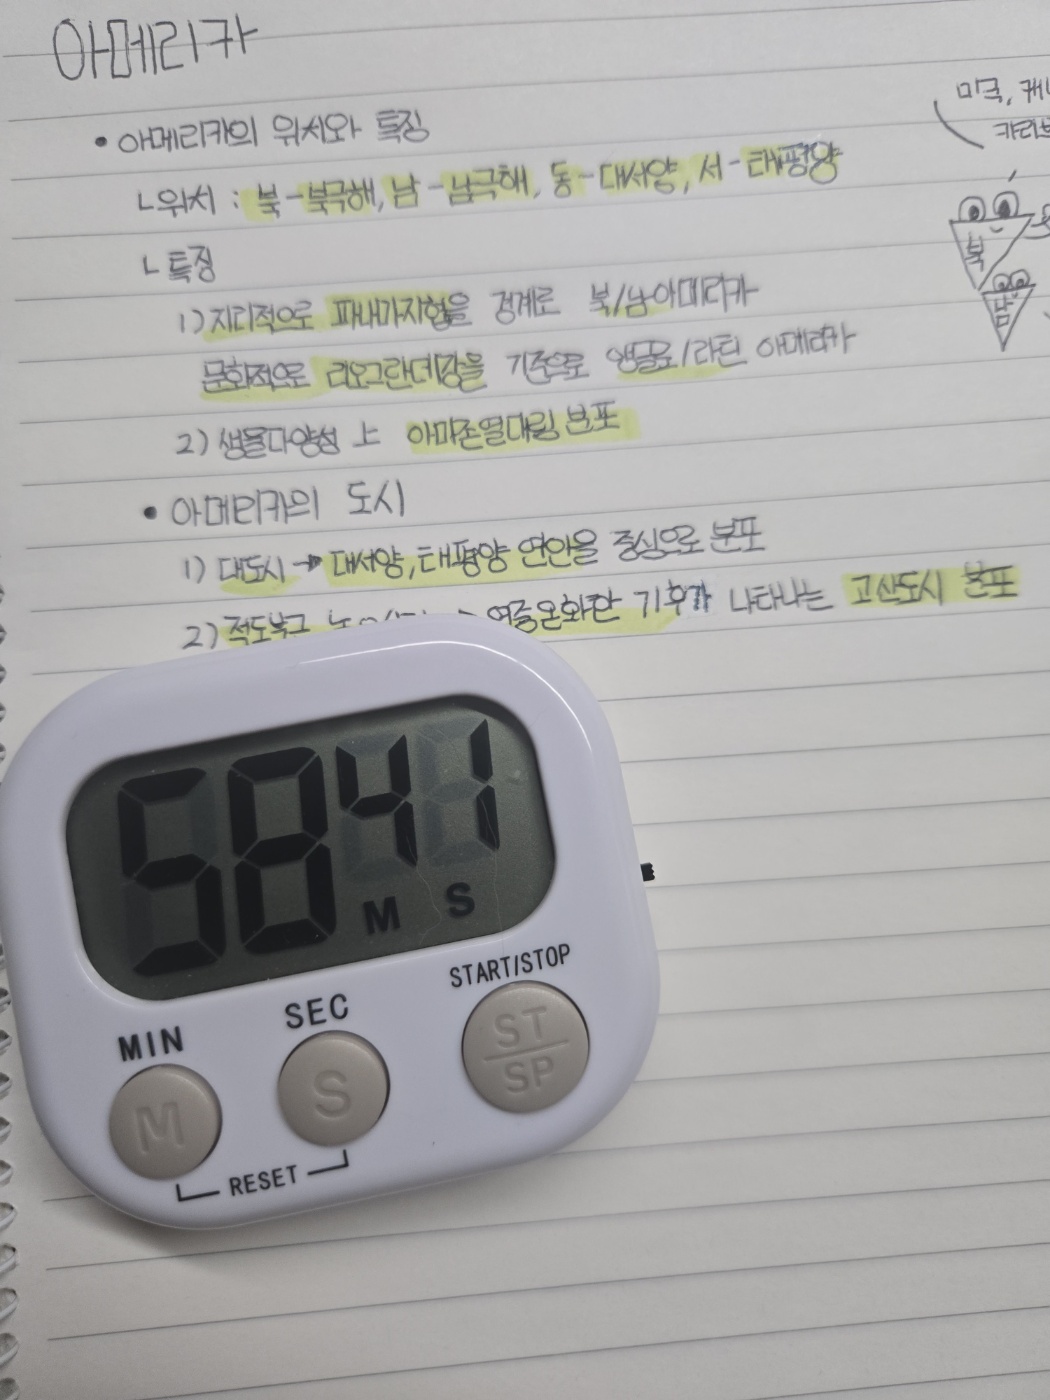 아메리카
• 아메리카의 위치와 특징
ㄴ위치 : 북-북극해, 남-남극해, 동-대서양, 서-태평양
ㄴ특징
1) 지리적으로 파나마지협을 경계로 북/남아메리카
문화적으로 리오그란데강을 기준으로 앵글로/라틴 아메리카
2) 생물다양성 上 아마존열대림 분포
• 아메리카의 도시
1) 대도시 → 대서양, 태평양 연안을 중심으로 분포
2) 적도부근 연중온화한 기후가 나타나는 고산도시 분포
미국, 캐
카리브
북
남
58 41
M S
START/STOP
MIN SEC
ST
SP
M S
RESET